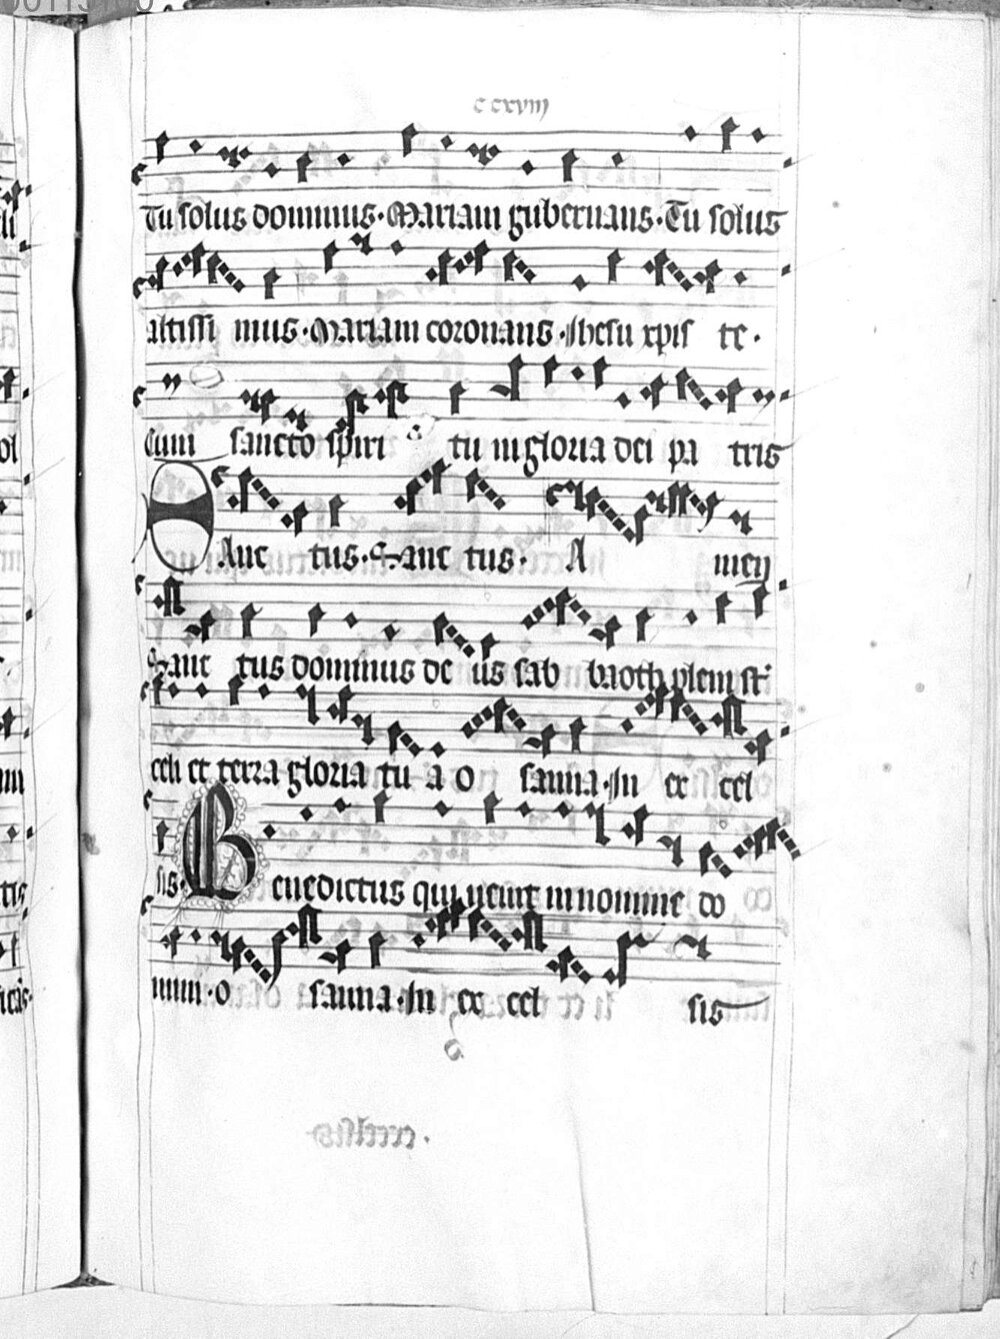 ccxviij
Tu solus dominus · Mariam gubernans · Tu solus
altissi mus · Mariam coronans · Ihesu xpis te ·
Cum sancto spiri tu in gloria dei pa tris
Sanc tus · Sanc tus · A men
Sanc tus dominus de us sab baoth pleni st
celi et terra gloria tu a O sanna · In ex cel
sis · Benedictus qui uenit in nomine do
mini · O sanna · In ex cel sis